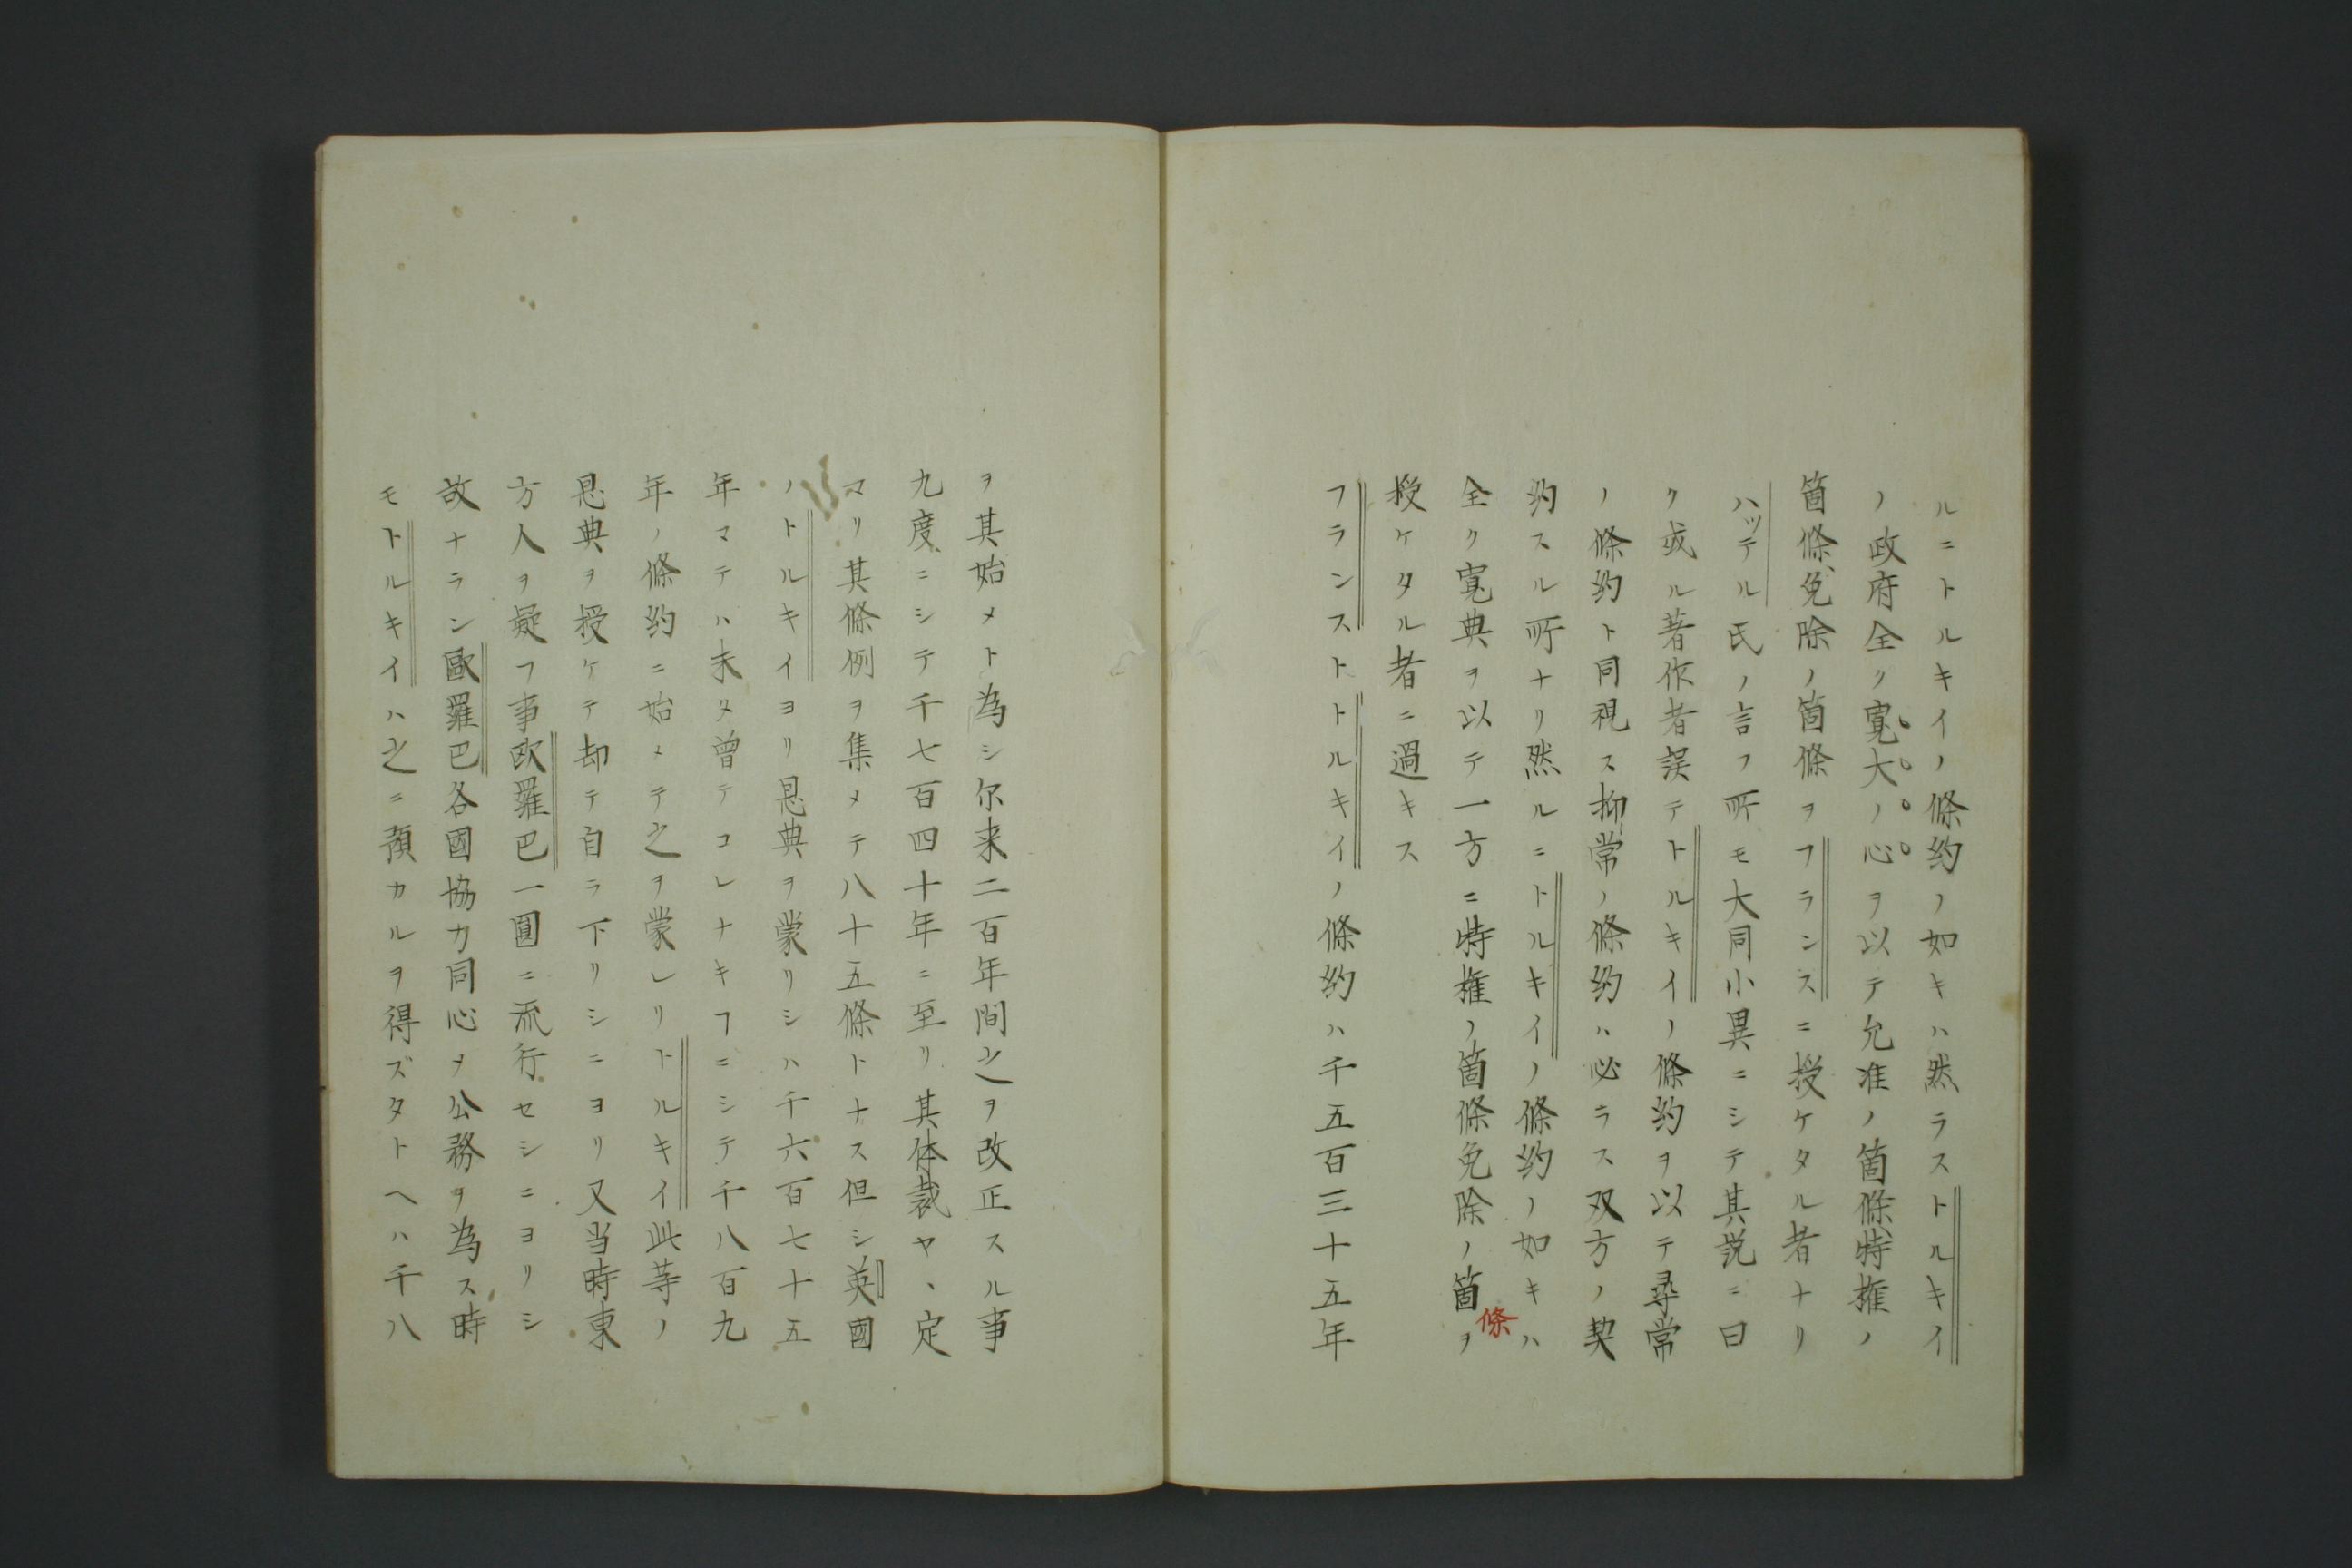 ルニトルキイノ條約ノ如キハ然ラストルキイ
ノ政府全ク寛大ノ心ヲ以テ允准ノ箇條特権ノ
箇條免除ノ箇條ヲフランスニ授ケタル者ナリ
ハッテル氏ノ言フ所モ大同小異ニシテ其説ニ曰
ク或ル著作者誤テトルキイノ條約ヲ以テ尋常
ノ條約ト同視ス抑常ノ條約ハ必ラス双方ノ契
約スル所ナリ然ルニトルキイノ條約ノ如キハ
全ク寛典ヲ以テ一方ニ特権ノ箇條免除ノ箇條ヲ
授ケタル者ニ過キス
フランストトルキイノ條約ハ千五百三十五年
ヲ其始メト為シ尓来二百年間之ヲ改正スル事
九度ニシテ千七百四十年ニ至リ其体裁ヤヽ定
マリ其條例ヲ集メテ八十五條トナス但シ英國
ノトルキイヨリ恩典ヲ蒙リシハ千六百七十五
年マテハ未タ曽テコレナキヿニシテ千八百九
年ノ條約ニ始メテ之ヲ蒙レリトルキイ此等ノ
恩典ヲ授ケテ却テ自ラ下リシニヨリ又当時東
方人ヲ疑フ事欧羅巴一圓ニ流行セシニヨリシ
故ナラン歐羅巴各國協力同心ヲ公務ヲ為ス時
モトルキイハ之ニ預カルヲ得ズタトヘハ千八